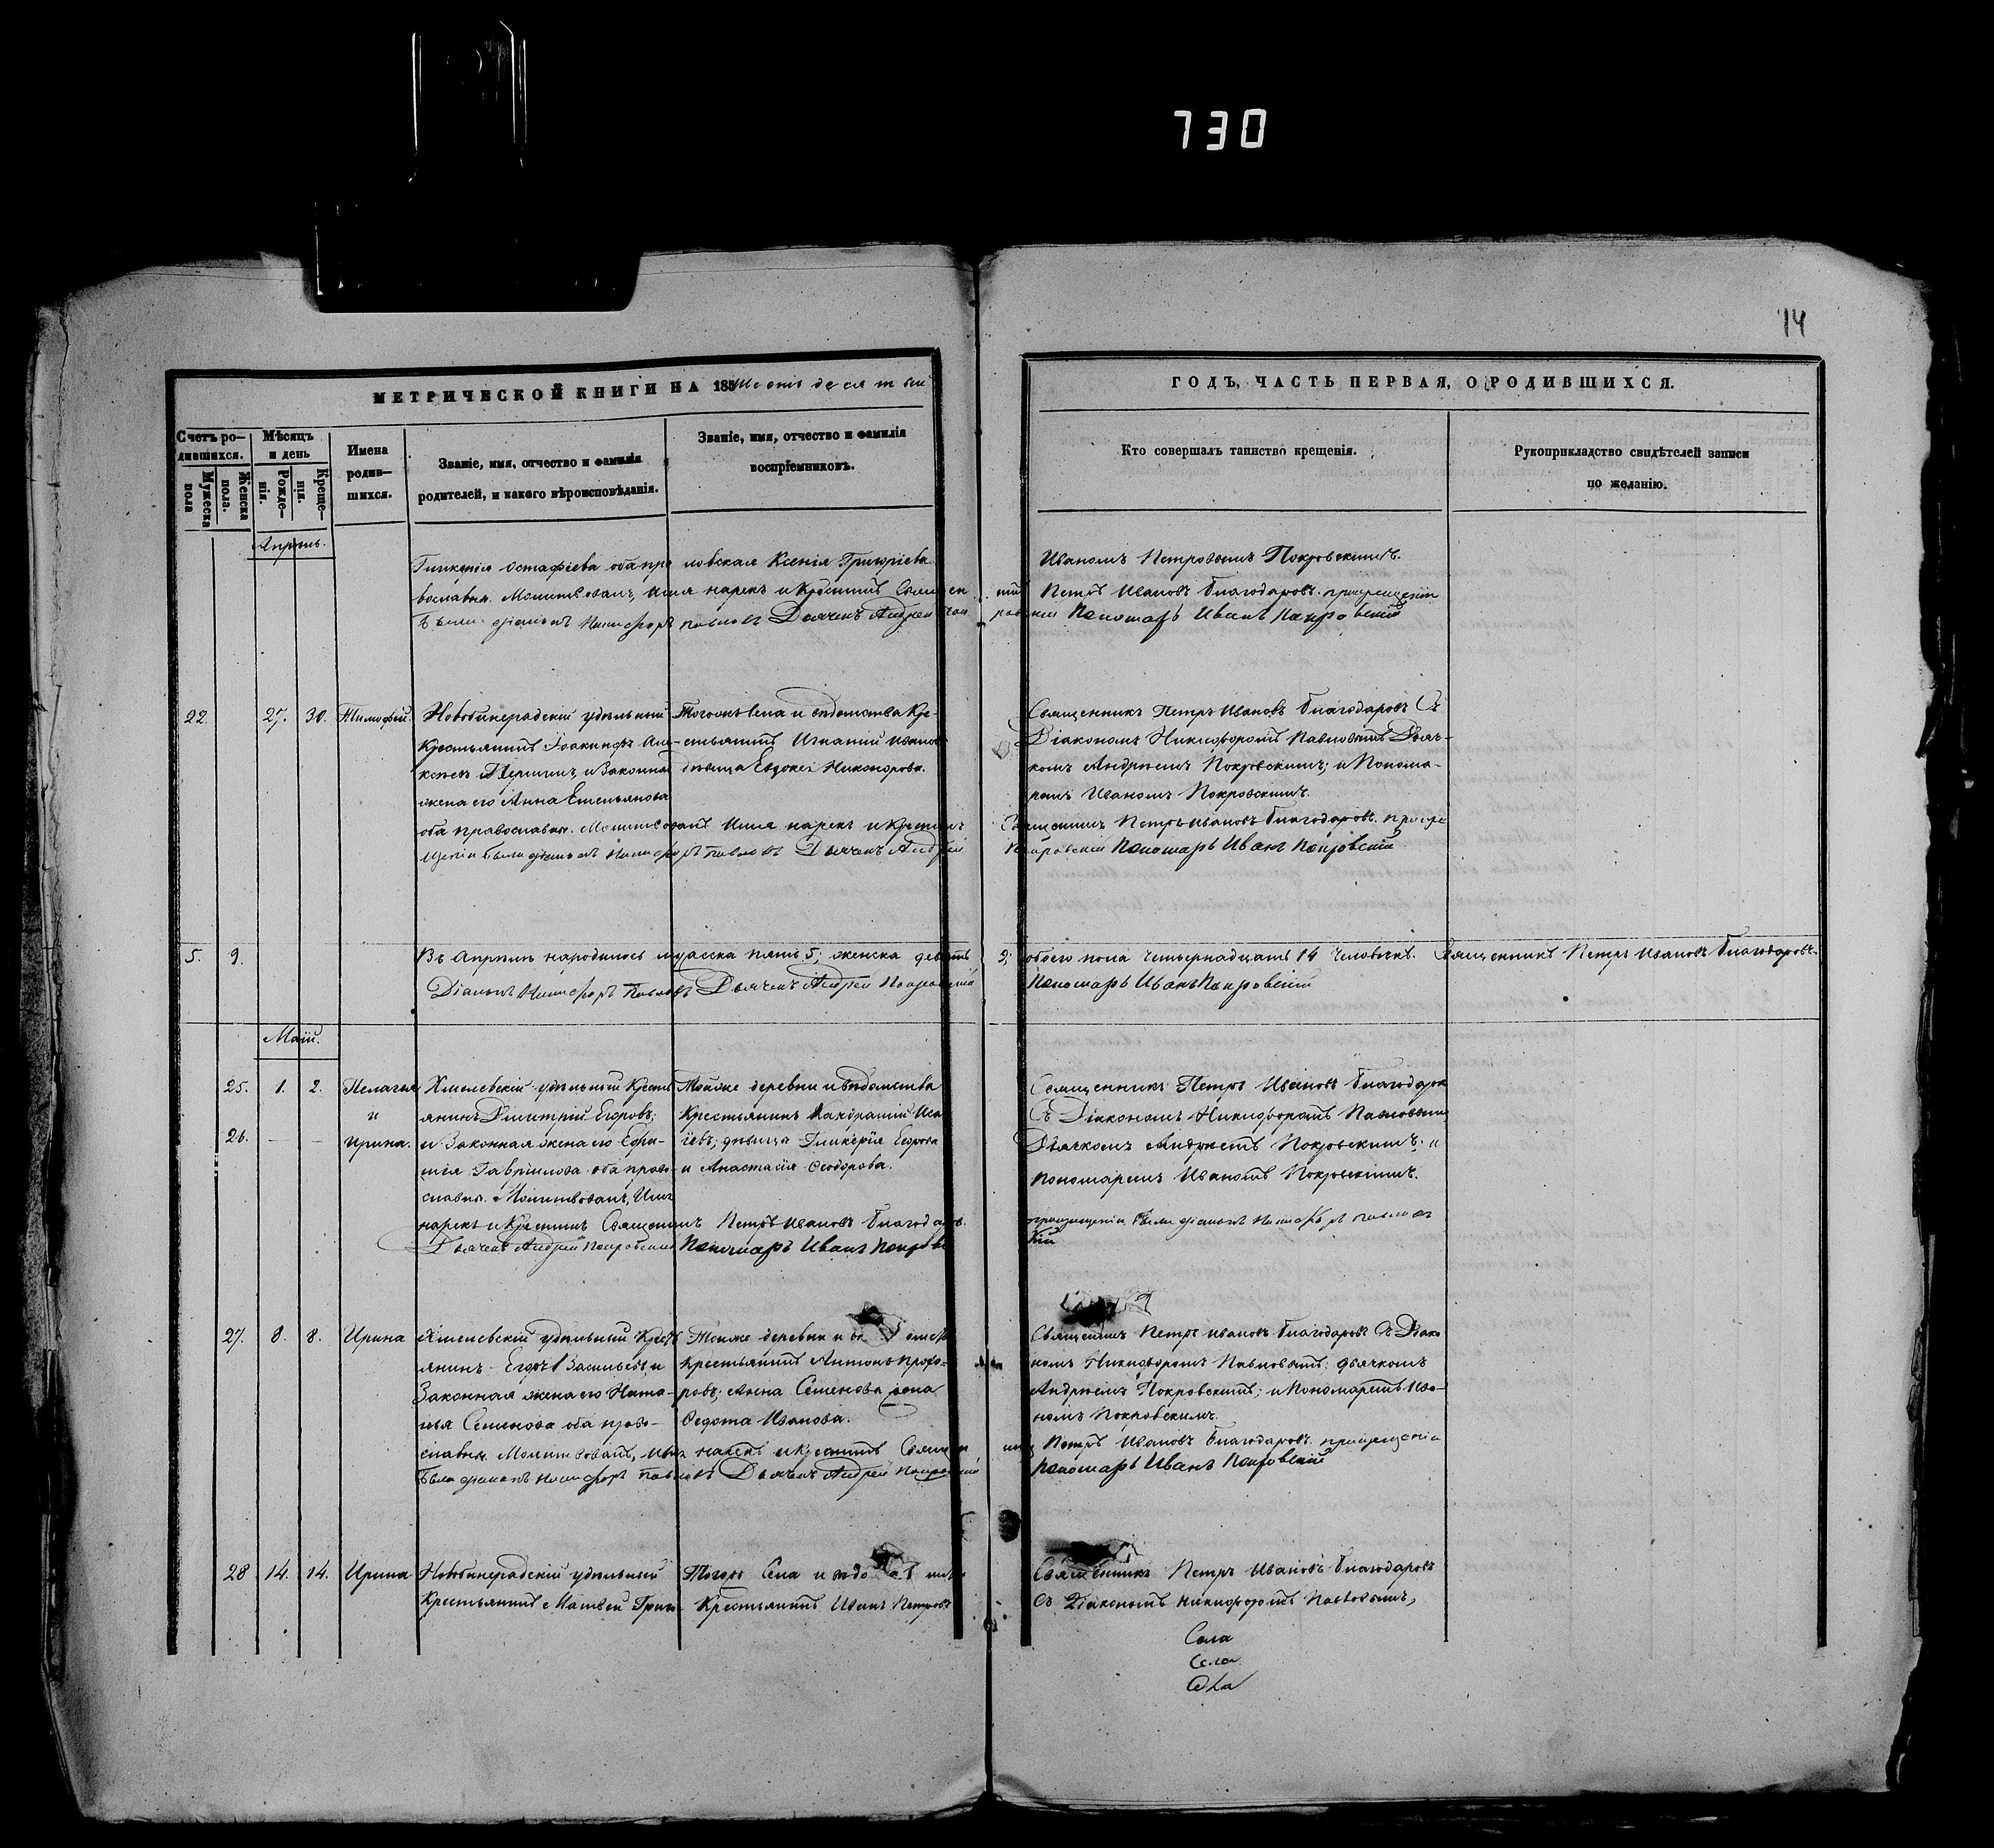 730
14
МЕТРИЧЕСКОЙ КНИГИ НА 185
ГОДЪ, ЧАСТЬ ПЕРВАЯ, О РОДИВШИХСЯ.
Счетъ ро–
дившихся.
Мужеска
пола
Женска
пола.
Мѣсяцъ
и день
Рожде–
нія.
Креще–
нія.
Имена
родив–
шихся.
Званіе, имя, отчество и фамилія
родителей, и какого вѣроисповѣданія.
Званіе, имя, отчество и фамилія
воспріемниковъ.
Кто совершалъ таинство крещенія.
Рукоприкладство свидѣтелей записи
по желанію.
Апрѣль.
Гликерія Остафіева оба пра
вославны. Молитвовалъ, имя нарекъ и Крестилъ Священ
ловская Ксенія Григоріева
Иваномъ Петровымъ Покровскимъ.
Петръ Ивановъ Благодаровъ. прикрещеніи
были діаконъ Никифоръ Павловъ Дьячекъ Андрей Пок
ровскій Пономарь Иванъ Покровскій
22. 27. 30. Тимофей.
Новобинерадскій удѣльный
Крестьянинъ Іоакинфъ Але–
ксѣевъ и Законная
жена его Анна Емельянова
оба православны. Молитвовалъ Имя нарекъ и Крестилъ
щеніи были діаконъ Никифоръ Павловъ Дьячекъ Андрей
Тогоже Села и вѣдомства Кре–
стьянинъ Игнатій Иванов
дѣвица Евдокія Никонорова.
Священникъ Петръ Ивановъ Благодаровъ Съ
Діакономъ Никифоромъ Павловымъ Дьяч–
комъ Андреемъ Покровскимъ; и Понома–
ремъ Иваномъ Покровскимъ.
Священникъ Петръ Ивановъ Благодаровъ. прикре
Покровскій Пономарь Иванъ Покровскій
5. 9. Въ Апрѣлѣ народилось мужеска пять 5; женска девять
9; обоего пола четырнадцать 14 человѣкъ. Священникъ Петръ Ивановъ Благодаровъ.
Діаконъ Никифоръ Павловъ Дьячекъ Андрей Покровскій
Пономарь Иванъ Покровскій
Маій.
25. 1. 2. Пелагея
и
26. – – Ирина.
Хмелевскій удѣльный Кресть
янинъ Димитрій Егоровъ;
и Законная жена его Ефи–
мія Гаврилова оба право
славны. Молитвовалъ, Имя
нарекъ и Крестилъ Священникъ Петръ Ивановъ Благодаровъ.
Дьячекъ Андрей Покровскій Пономарь Иванъ Покровс
Тойже деревни и вѣдомства
Крестьянинъ Кандратій Иса
іевъ; дѣвица Гликерія Егорова
и Анастасія Ѳеодорова.
Священникъ Петръ Ивановъ Благодаров
Съ Діакономъ Никифоромъ Павловымъ
Дьячкомъ Андреемъ Покровскимъ; и
пономаремъ Иваномъ Покровскимъ.
прикрещеніи были діаконъ Никифоръ Павловъ
кій
27. 8. 8. Ирина
Хмелевскій удѣльный Крест
янинъ Егоръ Васильевъ, и
Законная жена его Ната–
лья Семенова оба право–
славны. Молитвовалъ, имя нарекъ и Крестилъ Священ
были діаконъ Никифоръ Павловъ Дьячекъ Андрей Покровскій
Тойже деревни и
Крестьянинъ Антонъ Прохо–
ровъ; Анна Семенова жена
Ѳедота Иванова.
Священникъ Петръ Ивановъ Благодаровъ Съ Діако
номъ Никифоромъ Павловымъ: дьячкомъ
Андреемъ Покровскимъ; и Пономаремъ Ива–
номъ Покровскимъ.
никъ Петръ Ивановъ Благодаровъ. прикрещеніи
Пономарь Иванъ Покровскій
28 14. 14. Ирина
Новобинерадскій удѣльный
Крестьянинъ Матвей Григо
Тогоже Села и
Крестьянинъ Иванъ Петровъ
Священникъ Петръ Ивановъ Благодаровъ
Съ Діакономъ Никифоромъ Павловымъ,
Села
Села